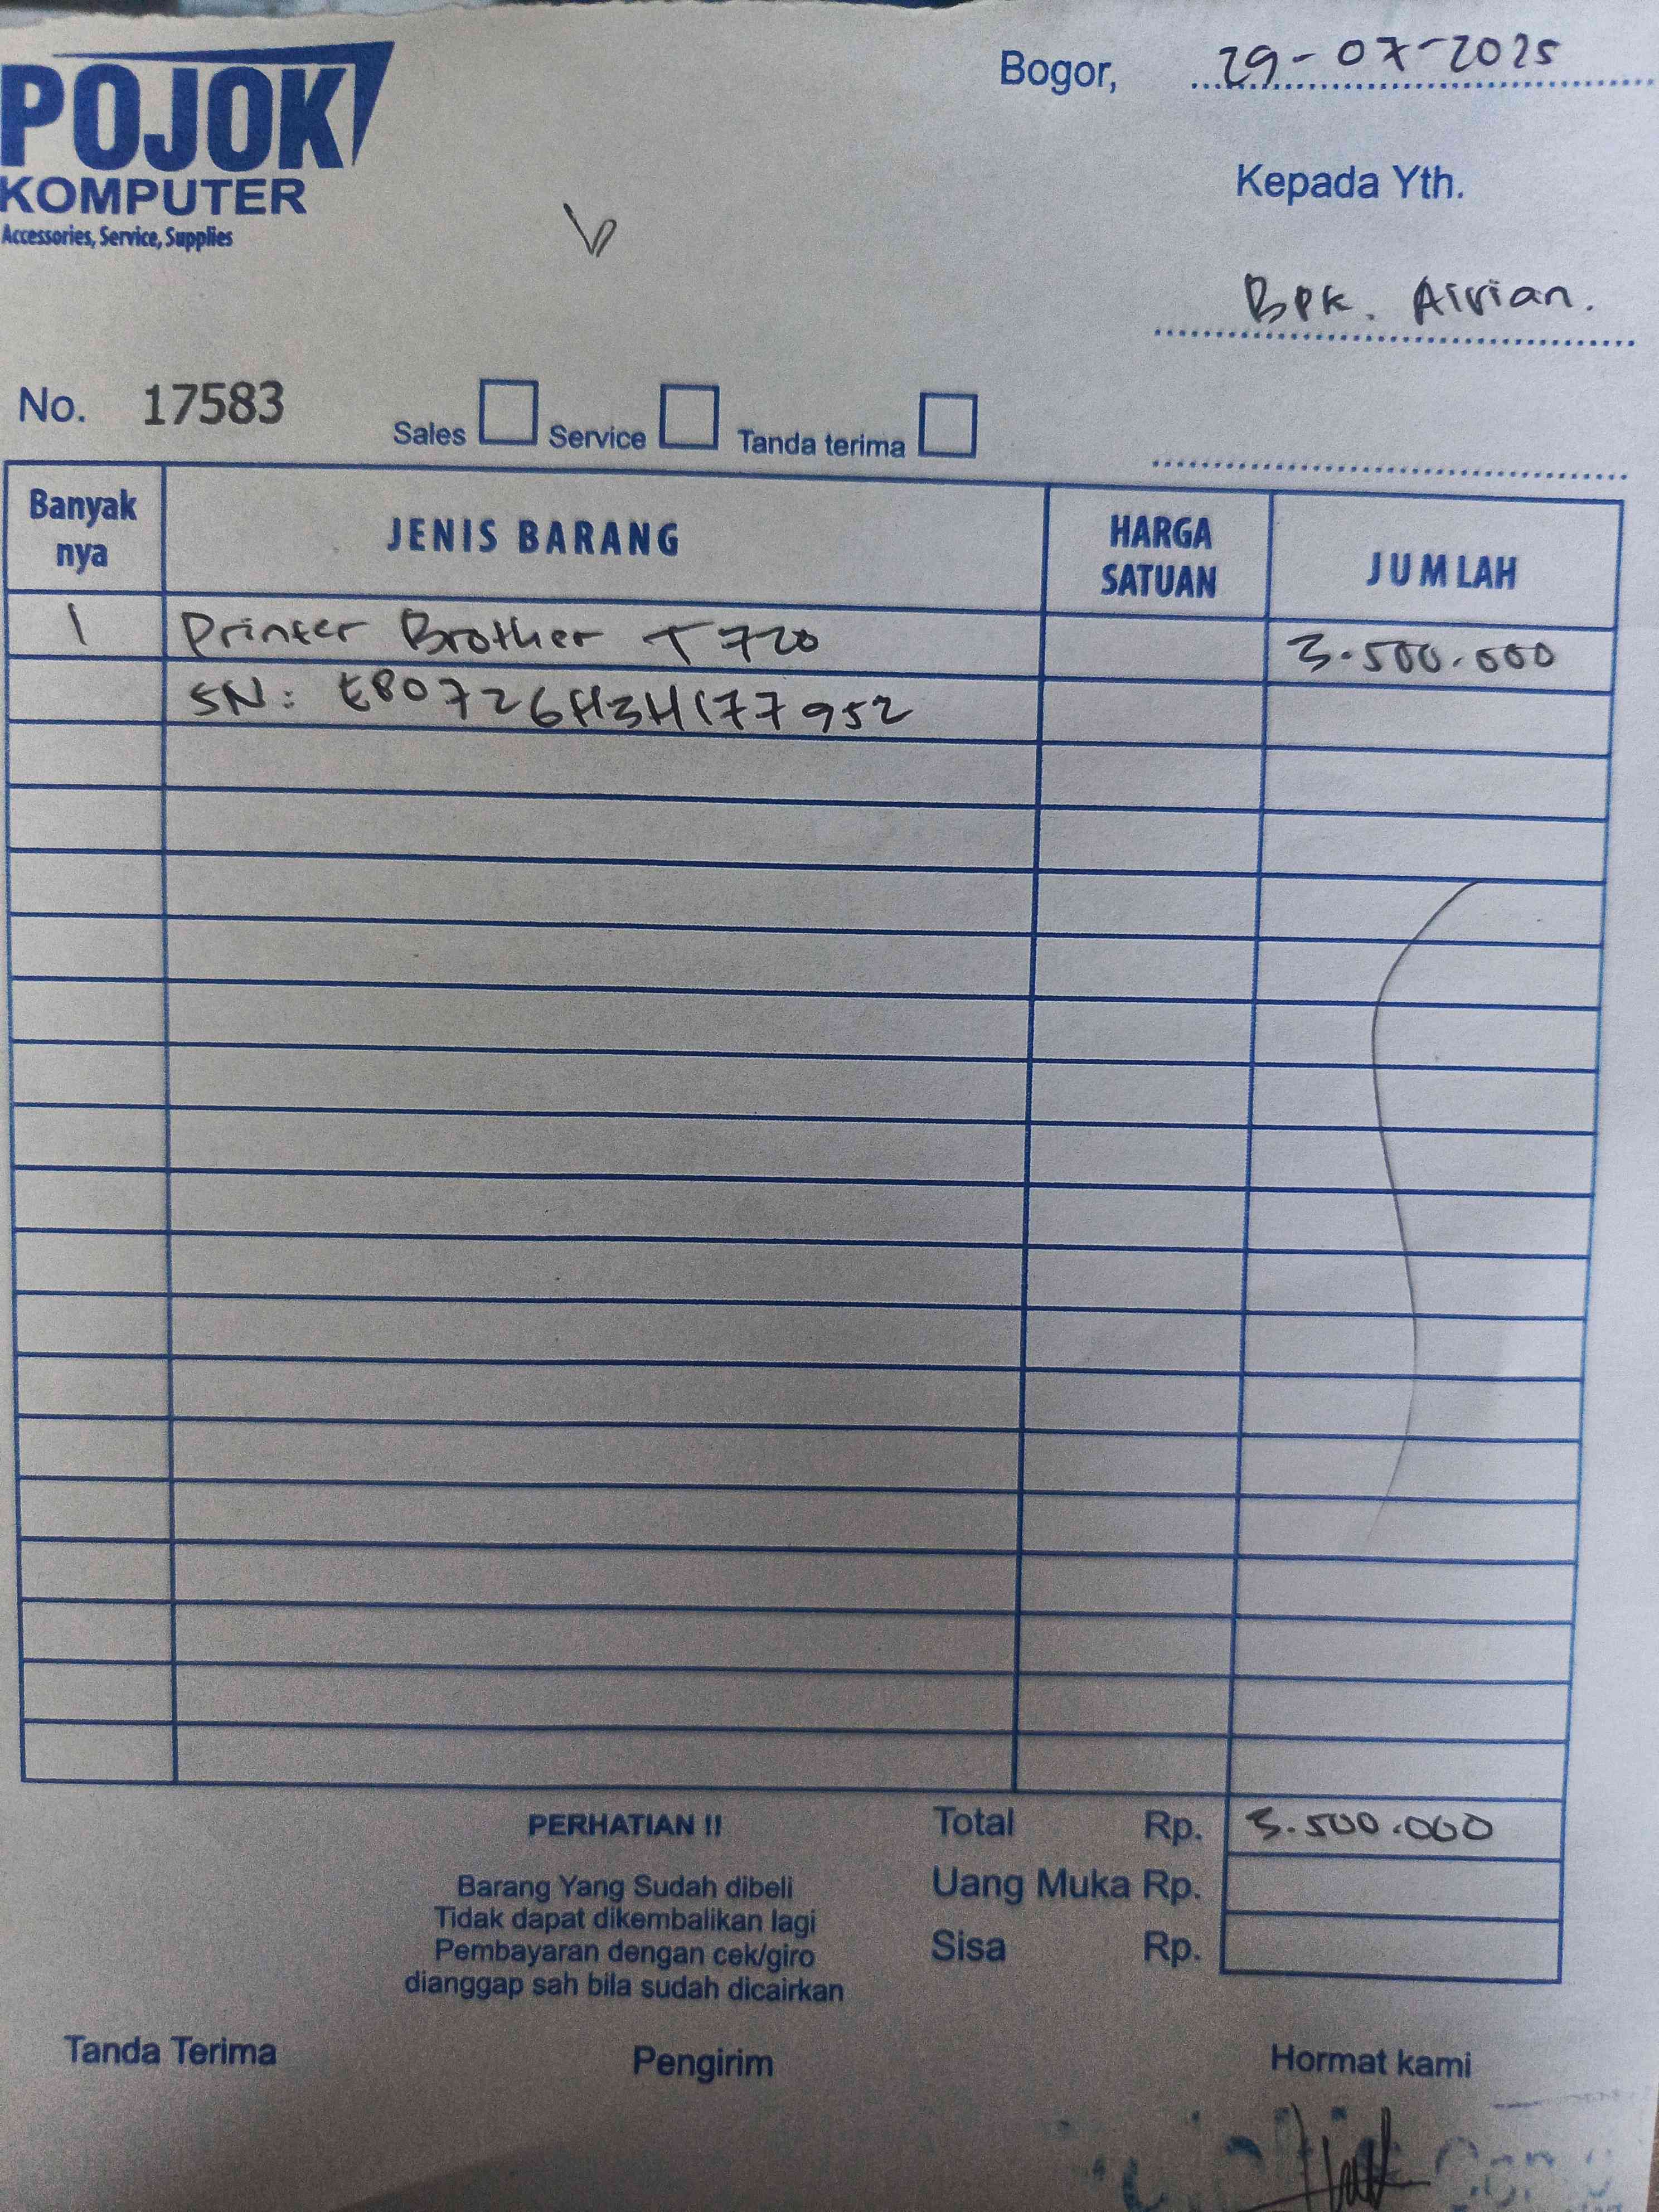 POJOK
KOMPUTER
Accessories, Service, Supplies
Bogor, 29-07-2025
Kepada Yth.
Bpk. Airian.
No. 17583
Sales Service Tanda terima
Banyak nya JENIS BARANG HARGA SATUAN JUMLAH
1 Printer Brother T720 3.500.000
SN: E80726H3H177952
PERHATIAN !!
Barang Yang Sudah dibeli
Tidak dapat dikembalikan lagi
Pembayaran dengan cek/giro
dianggap sah bila sudah dicairkan
Total Rp. 3.500.000
Uang Muka Rp.
Sisa Rp.
Tanda Terima Pengirim Hormat kami